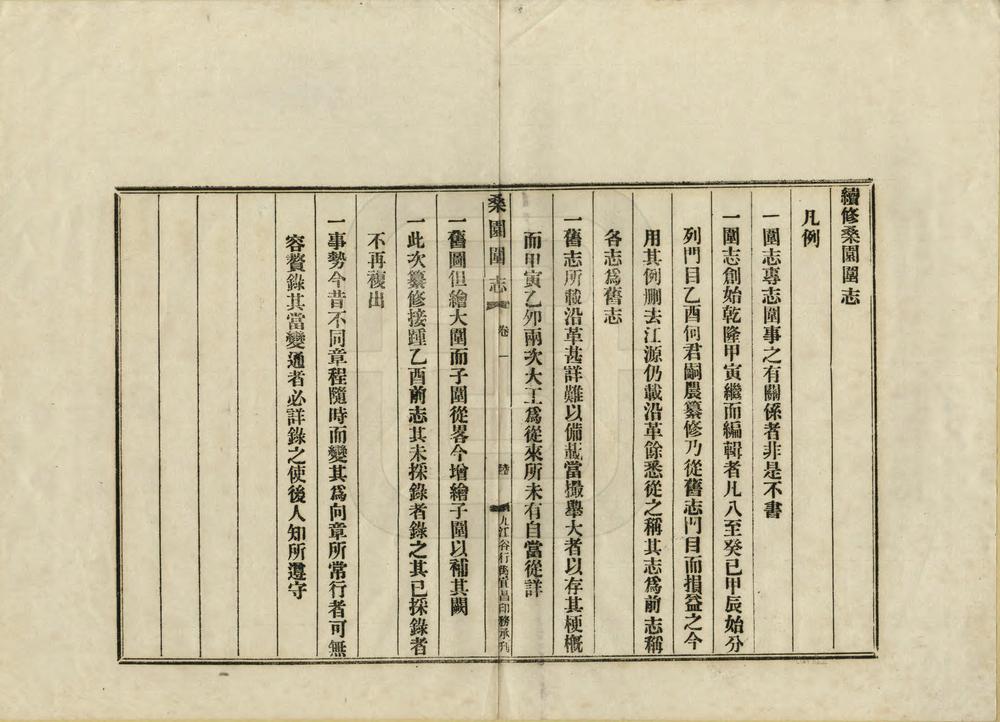 續修桑園圍志
凡例
一圍志專志圍事之有關係者非是不書
一圍志創始乾隆甲寅繼而編輯者凡八至癸巳甲辰始分
列門目乙酉何君嗣農纂修乃從舊志門目而損益之今
用其例刪去江源仍載沿革餘悉從之稱其志爲前志稱
各志爲舊志
一舊志所載沿革甚詳難以備載當撮舉大者以存其梗槪
而甲寅乙卯兩次大工爲從來所未有自當從詳
桑園圍志 卷一 陸 九江谷行街宜昌印務承刋
一舊圖但繪大圍而子圍從畧今增繪子圍以補其闕
一此次纂修接踵乙酉前志其未採錄者錄之其已採錄者
不再複出
一事勢今昔不同章程隨時而變其爲向章所常行者可無
容贅錄其當變通者必詳錄之使後人知所遵守